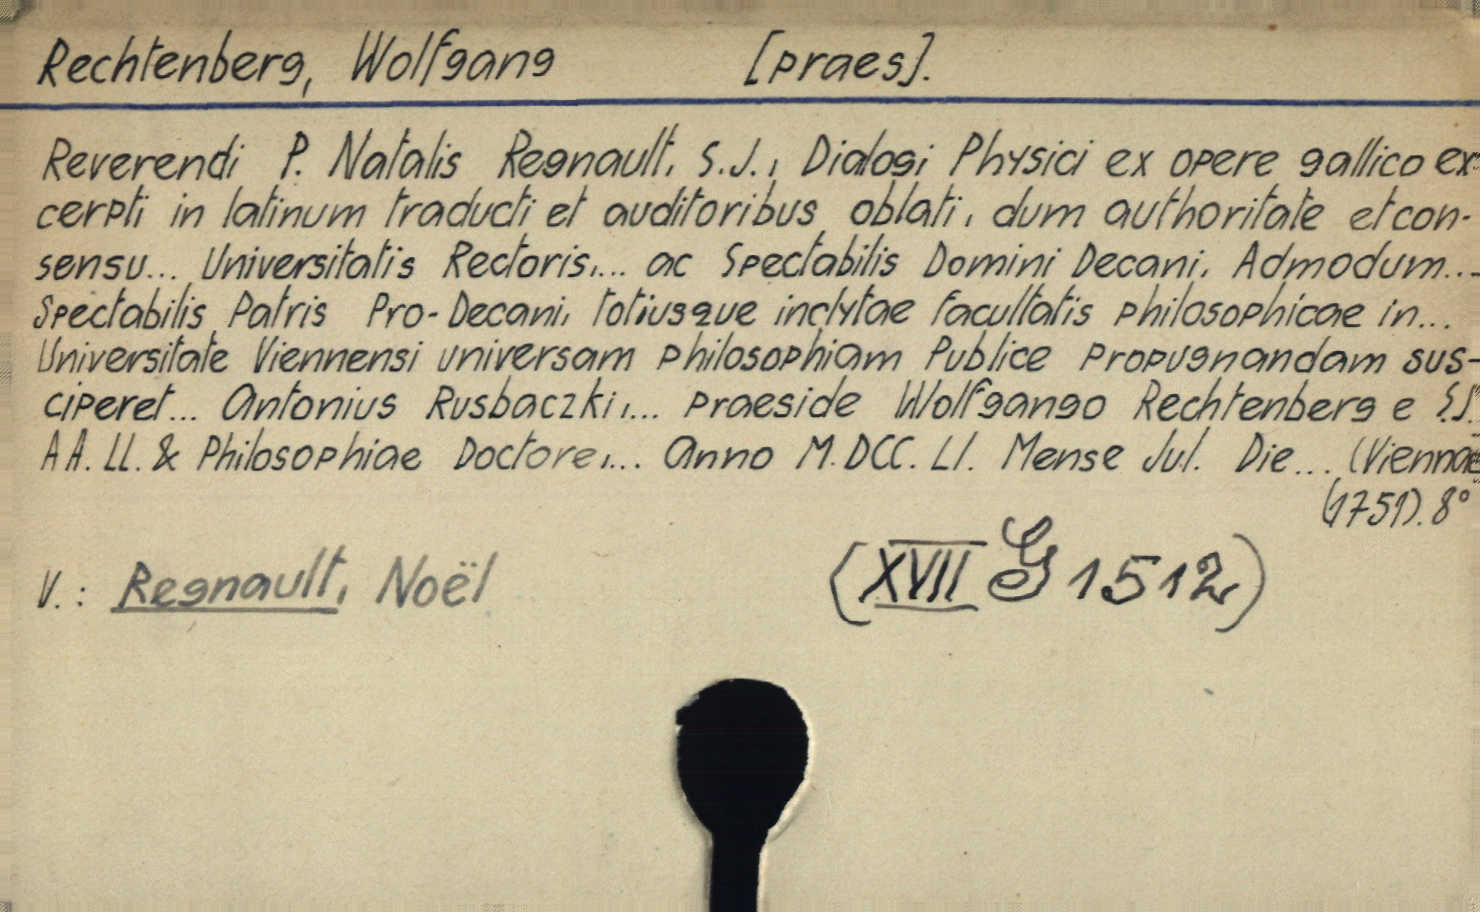 Rechtenberg, Wolfgang [praes].
Reverendi P. Natalis Regnault, S.J., Dialogi Physici ex opere gallico ex-
cerpti in latinum traducti et auditoribus oblati, dum authoritate et con-
sensu... Universitatis Rectoris,... ac Spectabilis Domini Decani, Admodum...
Spectabilis Patris Pro-Decani, totiusque inclytae facultatis philosophicae in...
Universitate Viennensi universam philosophiam Publice propugnandam sus-
ciperet... Antonius Rusbaczki,... praeside Wolfgango Rechtenberg e S.J.
AA. LL. & Philosophiae Doctore,... Anno M.DCC.LI. Mense Jul. Die... (Viennae
(1751). 8°
V.: Regnault, Noël (XVII G 1512)